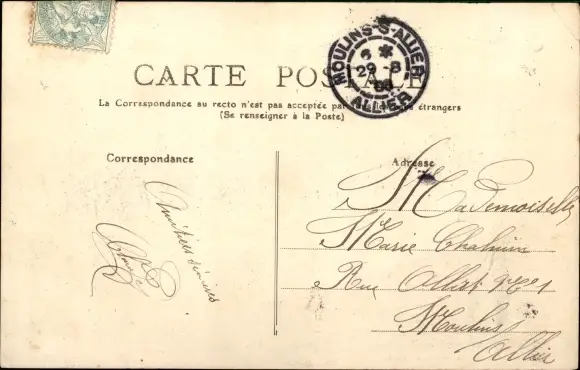 MOULINS-S-ALLIER
6 *
29 - 8
ALLIER
CARTE POSTALE
La Correspondance au recto n'est pas acceptée par les étrangers
(Se renseigner à la Poste)
Correspondance
Adresse
Amitiées sincères
Mademoiselle
Marie
Rue Allart 1
Moulins
Allier